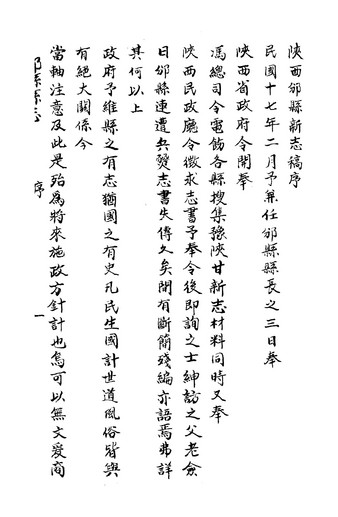 陝西邠縣新志稿序
民國十七年二月予兼任邠縣縣長之三日奉
陝西省政府令開奉
馮總司令電飭各縣搜集豫陝甘新志材料同時又奉
陝西民政廳令徵求志書予奉令後即詢之士紳訪之父老僉
曰邠縣連遭兵燹志書失傳久矣間有斷簡殘編亦語焉弗詳
其何以上
政府予維縣之有志猶國之有史凡民生國計世道風俗皆與
有絕大關係今
當軸注意及此是殆為將來施政方針計也烏可以無文爰商
邠縣縣志 序 一